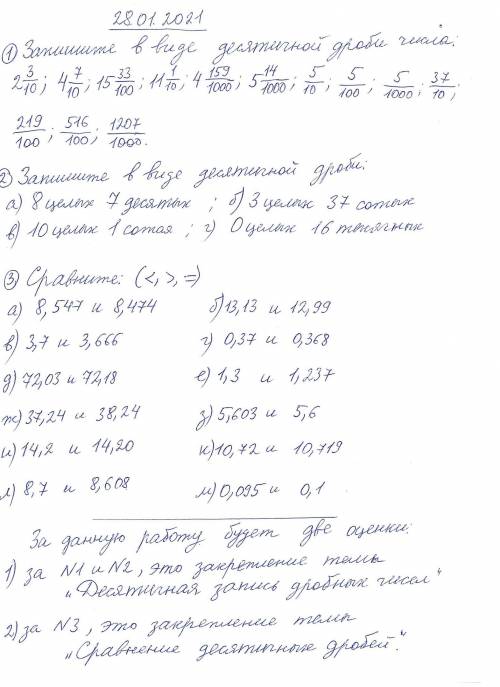 28.01.2021
① Запишите в виде десятичной дроби числа:
2 3/10; 4 7/10; 15 33/100; 11 1/10; 4 159/1000; 5 14/1000; 5/10; 5/100; 5/1000; 37/10;
219/100; 516/100; 1207/1000.
② Запишите в виде десятичной дроби:
а) 8 целых 7 десятых; б) 3 целых 37 сотых
в) 10 целых 1 сотая; г) 0 целых 16 тысячных
③ Сравните: (<, >, =)
а) 8,547 и 8,474 б) 13,13 и 12,99
в) 3,7 и 3,666 г) 0,37 и 0,368
д) 72,03 и 72,18 е) 1,3 и 1,237
ж) 37,24 и 38,24 з) 5,603 и 5,6
и) 14,2 и 14,20 к) 10,72 и 10,719
л) 8,7 и 8,608 м) 0,095 и 0,1
За данную работу будет две оценки:
1) за N1 и N2, это закрепление темы
„Десятичная запись дробных чисел"
2) за N3, это закрепление темы
„Сравнение десятичных дробей".